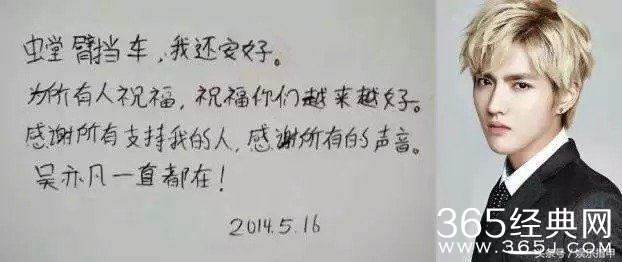 螳臂挡车，我还安好。
为所有人祝福，祝福你们越来越好。
感谢所有支持我的人，感谢所有的声音。
吴亦凡一直都在！
2014.5.16
365经典网
www.365j.com
头条号/娱乐指甲